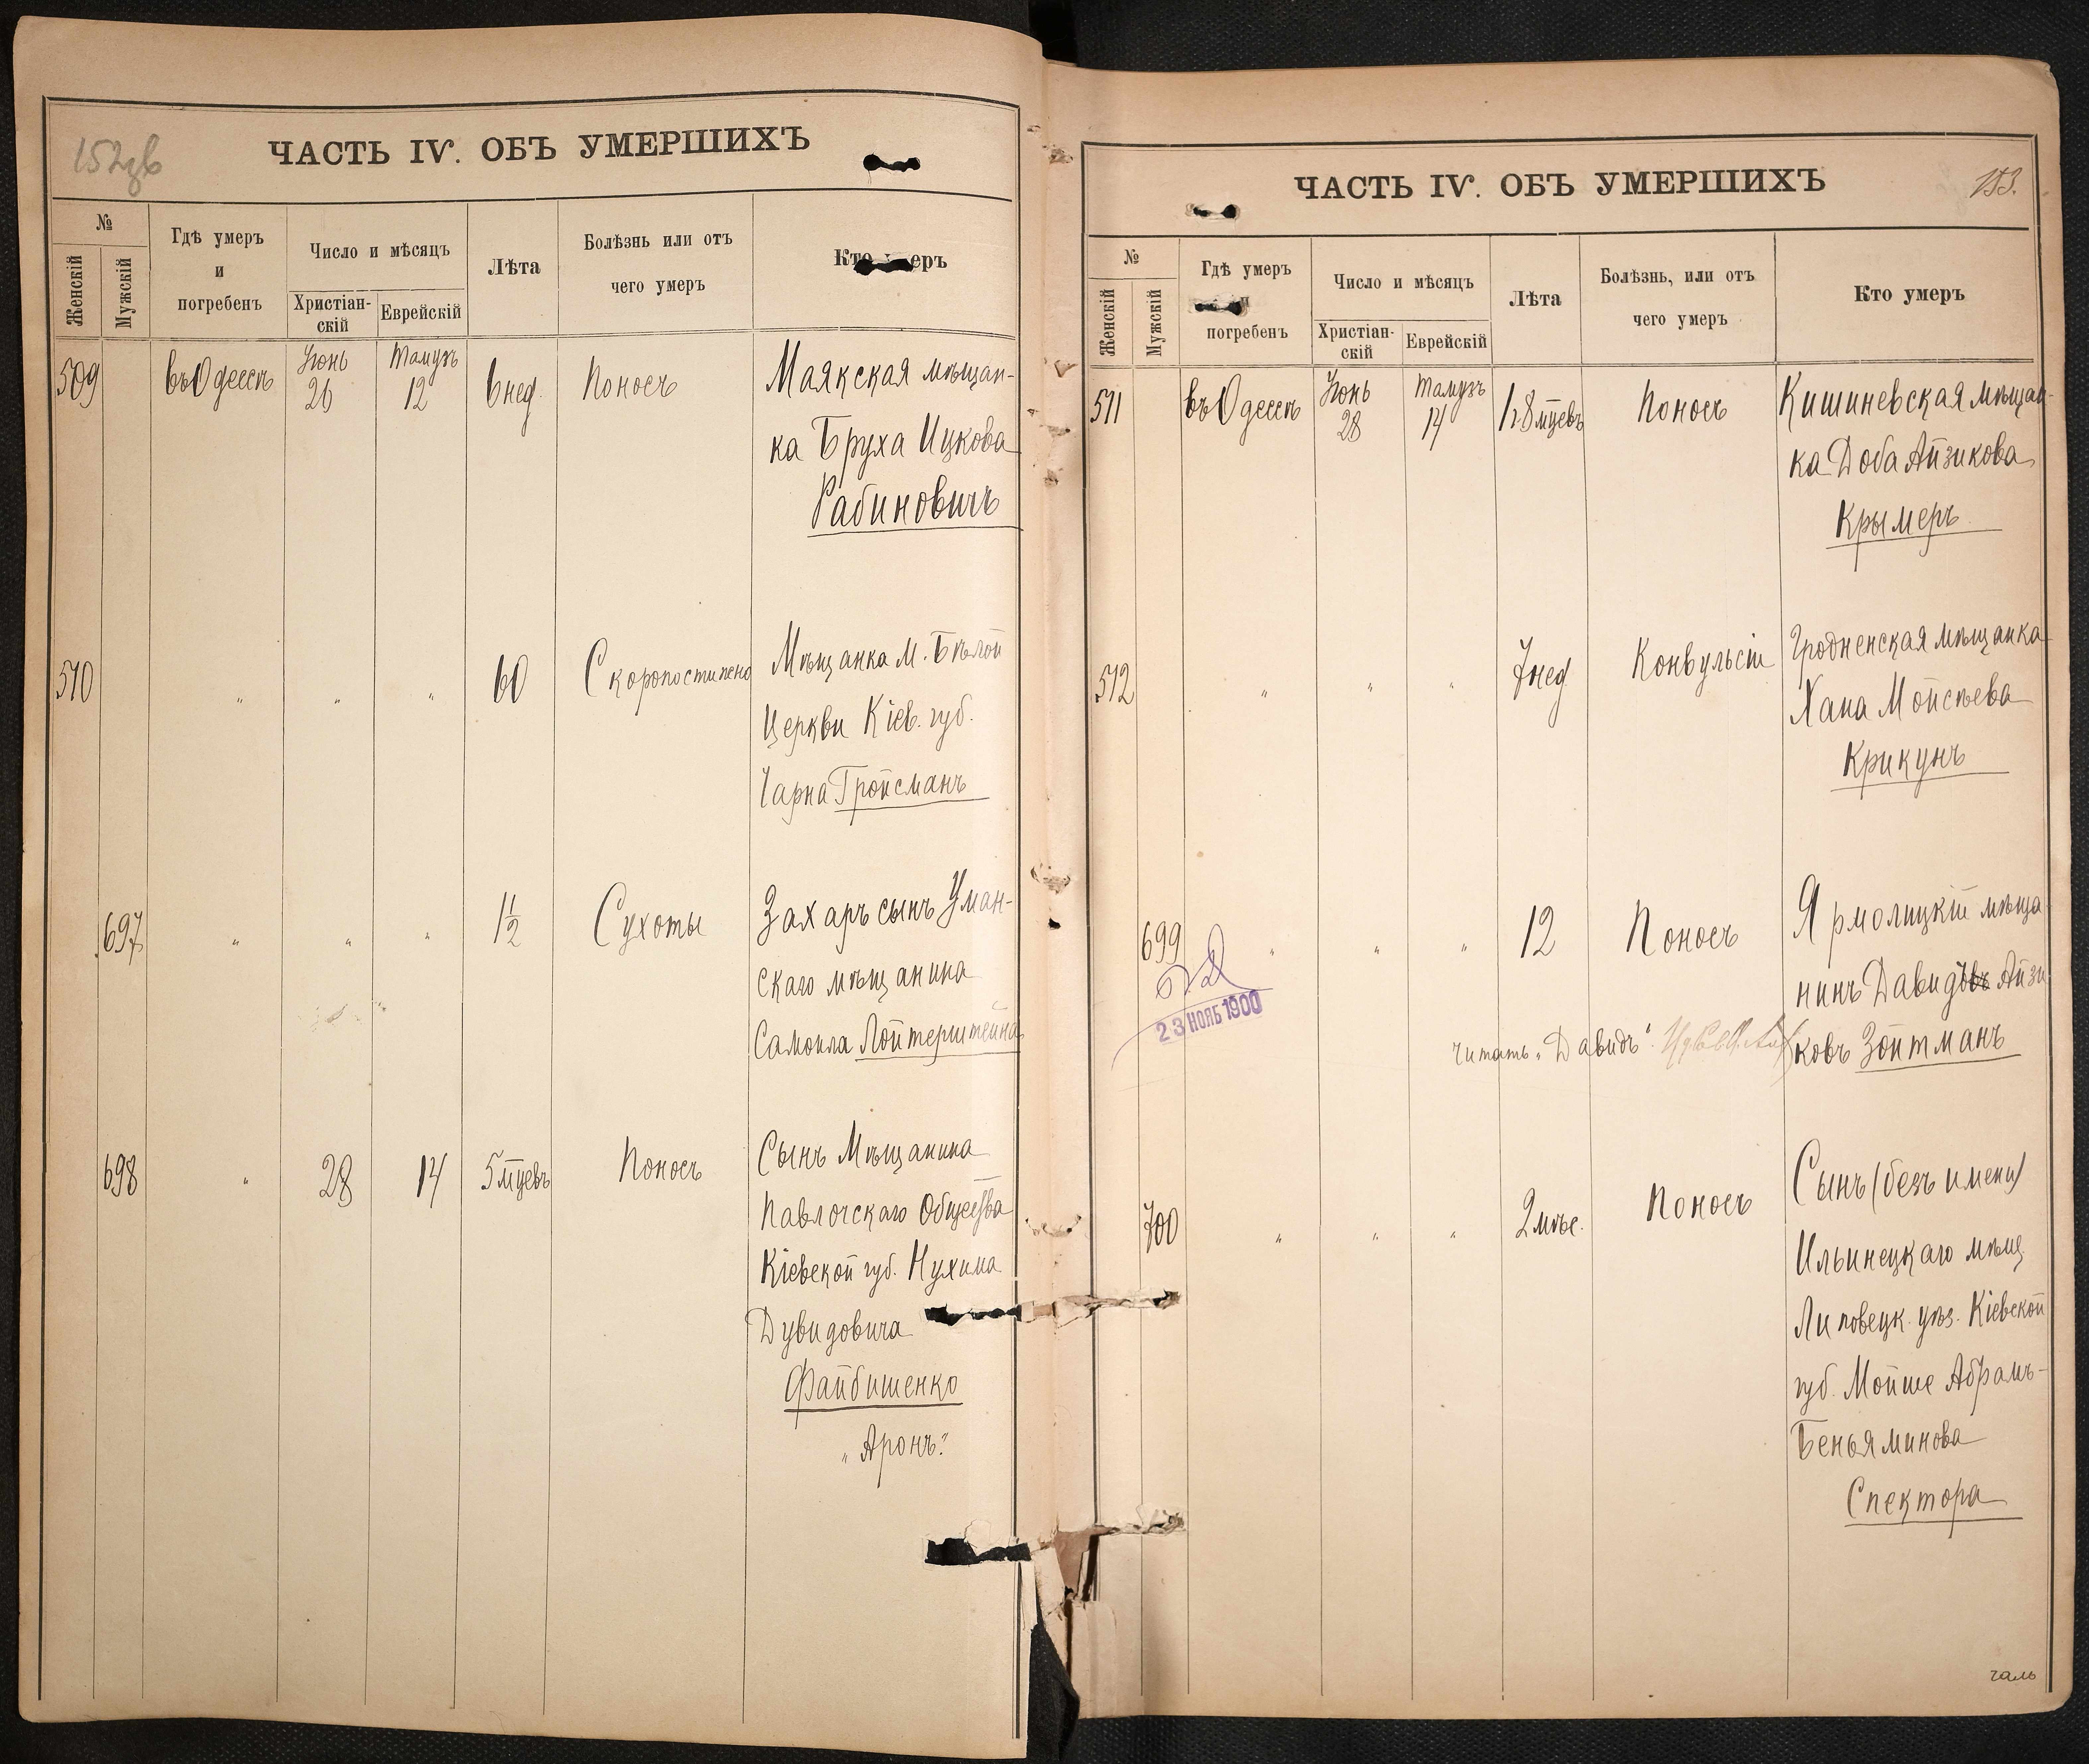 152об
ЧАСТЬ IV. ОБЪ УМЕРШИХЪ
№
Женскій
Мужскій
Гдѣ умеръ
и
погребенъ
Число и мѣсяцъ
Христіан-
скій
Еврейскій
Лѣта
Болѣзнь или отъ
чего умеръ
Кто умеръ
509 въ Одессѣ Іюнь 26 Тамузъ 12 6 нед. Поносъ Маякская мѣщан-
ка Бруха Ицкова
Рабиновичъ
510 " " " 60 Скоропостижно Мѣщанка м. Бѣлой
Церкви Кіев. губ.
Чарна Гройсманъ
697 " " " 1½ Сухоты Захаръ сынъ Уман-
скаго мѣщанина
Самоила Лойтерштейна
698 " 28 14 5 мцевъ Поносъ Сынъ Мѣщанина
Павлочскаго Общества
Кіевской губ. Нухима
Дувидовича
Файбишенко
"Аронъ."
ЧАСТЬ IV. ОБЪ УМЕРШИХЪ
153.
№
Женскій
Мужскій
Гдѣ умеръ
и
погребенъ
Число и мѣсяцъ
Христіан-
скій
Еврейскій
Лѣта
Болѣзнь, или отъ
чего умеръ
Кто умеръ
511 въ Одессѣ Іюнь 28 Тамузъ 14 1.8 мцевъ Поносъ Кишиневская мѣщан-
ка Доба Айзикова
Крымеръ
512 " " " 7 нед Конвульсіи Гродненская мѣщанка
Хана Мойсѣева
Крикунъ
699 " " " 12 Поносъ Ярмолицкій мѣща
нинъ Давидъ Айзи
ковъ Зойтманъ
23 НОЯБ 1900
читать "Давидъ"
700 " " " 2 мѣс. Поносъ Сынъ (безъ имени)
Ильинецкаго мѣщ
Липовецк. уѣз. Кіевской
губ. Мойше Абрамъ-
Беньяминова
Спектора
галь